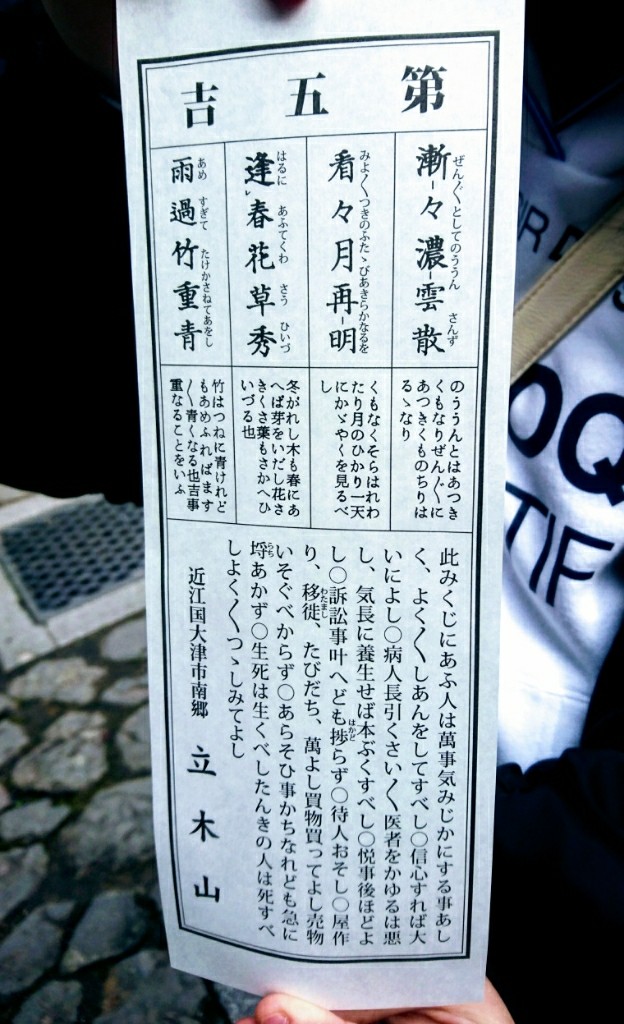 第五吉
漸々濃雲散
ぜん〴〵としてのううん さんず
看々月再明
みよ〳〵つきのふたゝびあきらかなるを
逢春花草秀
はるに あふてくわ さう ひいづ
雨過竹重青
あめ すぎて たけかさねてあをし
のううんとはあつき
くもなりぜん〴〵に
あつきくものちりは
るゝなり
くもなくそらはれわ
たり月のひかり一天
にかゞやくを見るべ
し
冬がれし木も春にあ
へば芽をいだし花さ
きくさ葉もさかへひ
いづる也
竹はつねに青けれど
もあめふればます
〳〵青くなる也吉事
重なることをいふ
此みくじにあふ人は萬事気みじかにする事あし
く、よく〳〵しあんをしてすべし〇信心すれば大
いによし〇病人長引くさい〳〵医者をかゆるは悪
し、気長に養生せば本ぶくすべし〇悦事後ほどよ
し〇訴訟事叶へども捗らず〇待人おそし〇屋作
はかど
り、移徙、たびだち、萬よし買物買ってよし売物
わたまし
いそぐべからず〇あらそひ事かちなれども急に
埒あかず〇生死は生くべしたんきの人は死すべ
らち
しよく〳〵つゝしみてよし
近江国大津市南郷 立木山
OQ
TIF